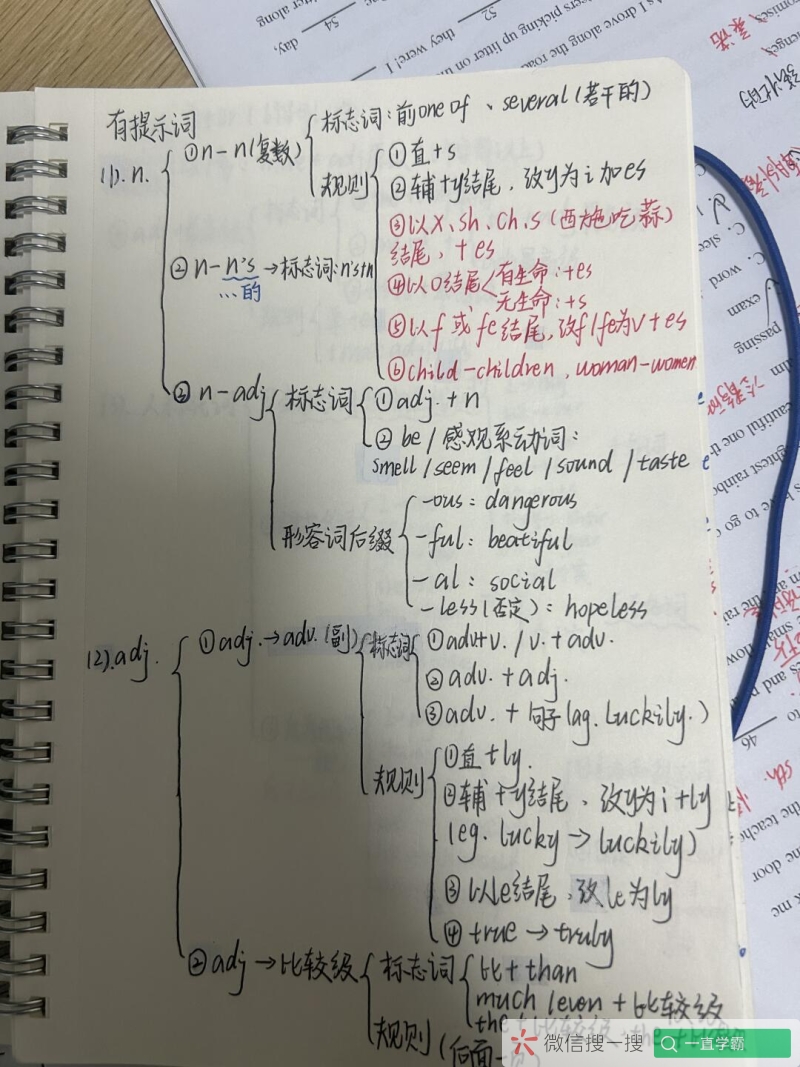 有提示词
(1). n.
①n-n(复数)
标志词:前one of、several(若干的)
规则
①直+s
②辅+y结尾,改y为i加es
③以x、sh、ch、s(西施吃蒜)
结尾,+es
④以o结尾
有生命:+es
无生命:+s
⑤以f或fe结尾,改f/fe为v+es
⑥child-children, woman-women
②n-n's→标志词:n's+n
...的
③n-adj
标志词
①adj.+n
②be/感观系动词:
smell/seem/feel/sound/taste
形容词后缀
-ous: dangerous
-ful: beatiful
-al: social
-less(否定): hopeless
(2).adj.
①adj.→adv.(副)
标志词
①adv+v./v.+adv.
②adv.+adj.
③adv.+句子(ag. Luckily.)
规则
①直+ly.
②辅+y结尾,改y为i+ly
(eg. lucky→luckily)
③以le结尾,改le为ly
④true→truly
②adj→比较级
标志词
比+than
much/even+比较级
the+比较级,the+比
规则
(后面一
微信搜一搜
一直学霸
day,
they were! I
54
52
ers picking up litter on
As I drove along the roa
承诺
C. word
exam
passing
autiful one th
ghtest rainbo
46
sth.
the teache
me door
k me